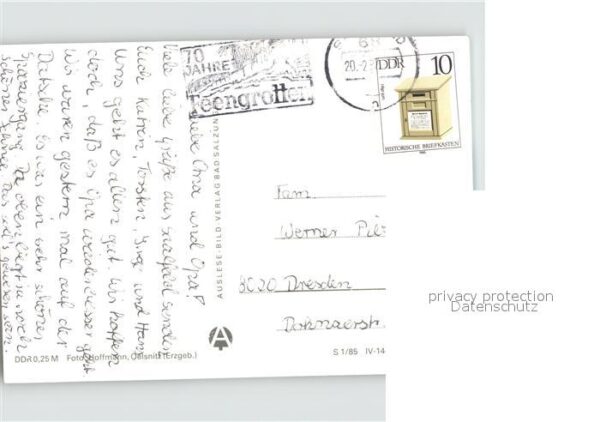 70
JAHRE
Feengrotten
20.-2.
DDR
10
HISTORISCHE BRIEFKASTEN
Liebe Oma und Opa!
Viele liebe Grüße aus Saalfeld senden
Euch Katrin, Torsten, und Hans
Uns geht es allen gut. Wir hoffen
doch, daß es Opa wieder besser geht
Wir waren gestern mal auf der
Datsche. Es war ein sehr schöner
Spaziergang. Da oben liegt so viel
schöner
AUSLESE-BILD VERLAG BAD SALZUN
Fam.
Werner
8020 Dresden
Dohnaerstr.
privacy protection
Datenschutz
DDR 0,25 M Foto: Hoffmann, Oelsnitz (Erzgeb.)
S 1/85 IV-14